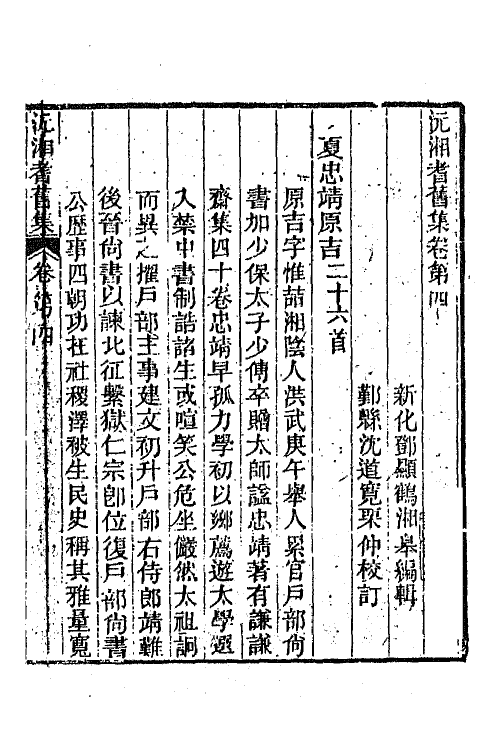 沅湘耆舊集卷第四
新化鄧顯鶴湘皋編輯
鄞縣沈道寬栗仲校訂
夏忠靖原吉二十六首
原吉字惟喆湘陰人洪武庚午舉人累官戶部尚
書加少保太子少傅卒贈太師諡忠靖著有謙謙
齋集四十卷忠靖早孤力學初以鄉薦遊太學選
入禁中書制誥諸生或喧笑公危坐儼然太祖詗
而異之擢戶部主事建文初升戶部右侍郎靖難
後晉尚書以諫北征繫獄仁宗卽位復戶部尚書
公歷事四朝功在社稷澤被生民史稱其雅量寬
沅湘耆舊集 卷第四